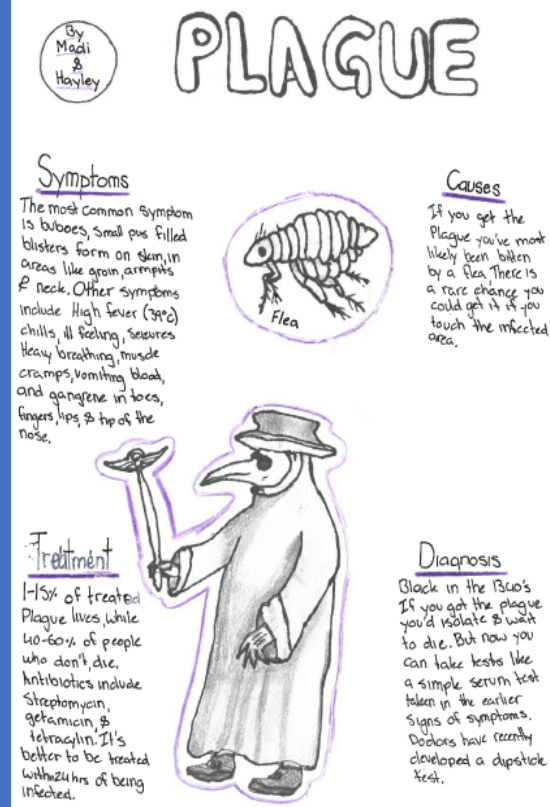 By
Madi
&
Hayley
PLAGUE
Symptoms
The most common symptom
is buboes, small pus filled
blisters form on skin, in
areas like groin, armpits
& neck. Other symptoms
include High fever (39°C)
chills, ill feeling, seizures
Heavy breathing, muscle
cramps, vomiting blood,
and gangrene in toes,
fingers, lips, & tip of the
nose.
Flea
Causes
If you get the
Plague you've most
likely been bitten
by a flea There is
a rare chance you
could get it if you
touch the infected
area.
Treatment
1-15% of treated
Plague lives, while
40-60% of people
who don't, die.
Antibiotics include
Streptomycin,
getamicin, &
tetracylin. It's
better to be treated
within 24 hrs of being
infected.
Diagnosis
Black in the 1340's
If you got the plague
you'd isolate & wait
to die. But now you
can take tests like
a simple serum test
taken in the earlier
signs of symptoms.
Doctors have recently
developed a dipstick
test.